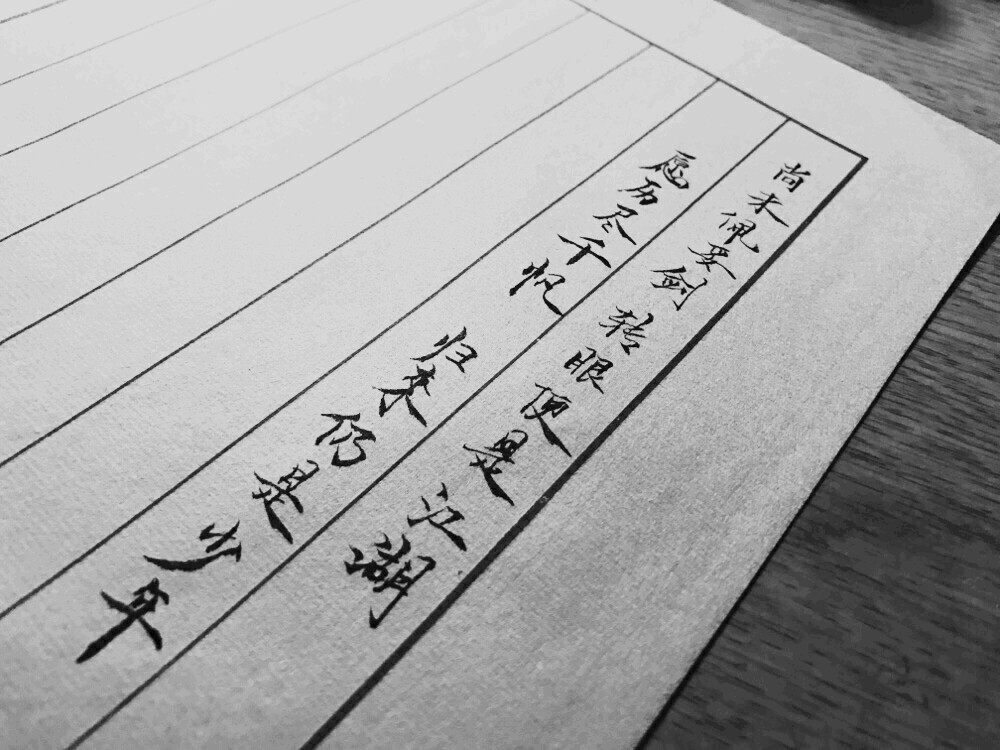 尚未佩妥剑 转眼便是江湖
愿历尽千帆 归来仍是少年